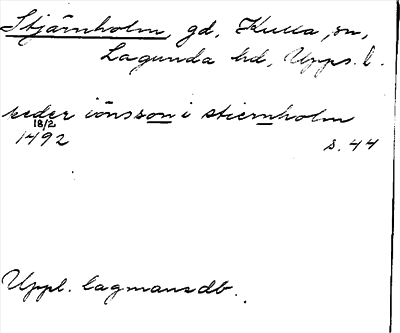 Stjärnholm, gd, Kulla sn,
Lagunda hd, Upps. l.
peder iönsson i stiernholm
18/2
1492 s. 44
Uppl. lagmansdb.